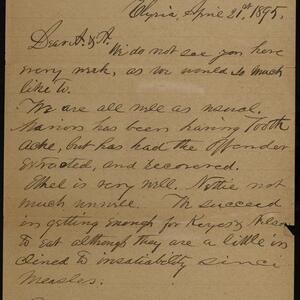 Elyria, April 21st 1895.
Dear A. & A.
We do not see you here
every week, as we would so much
like to.
We are all well as usual.
Marion has been having Tooth
Ache, but has had the offender
extracted, and recovered.
Ethel is very well. Nettie not
much unwell. We succeed
in getting enough for Keyes &
to eat although they are a little in
clined to insatiability since
Measles.